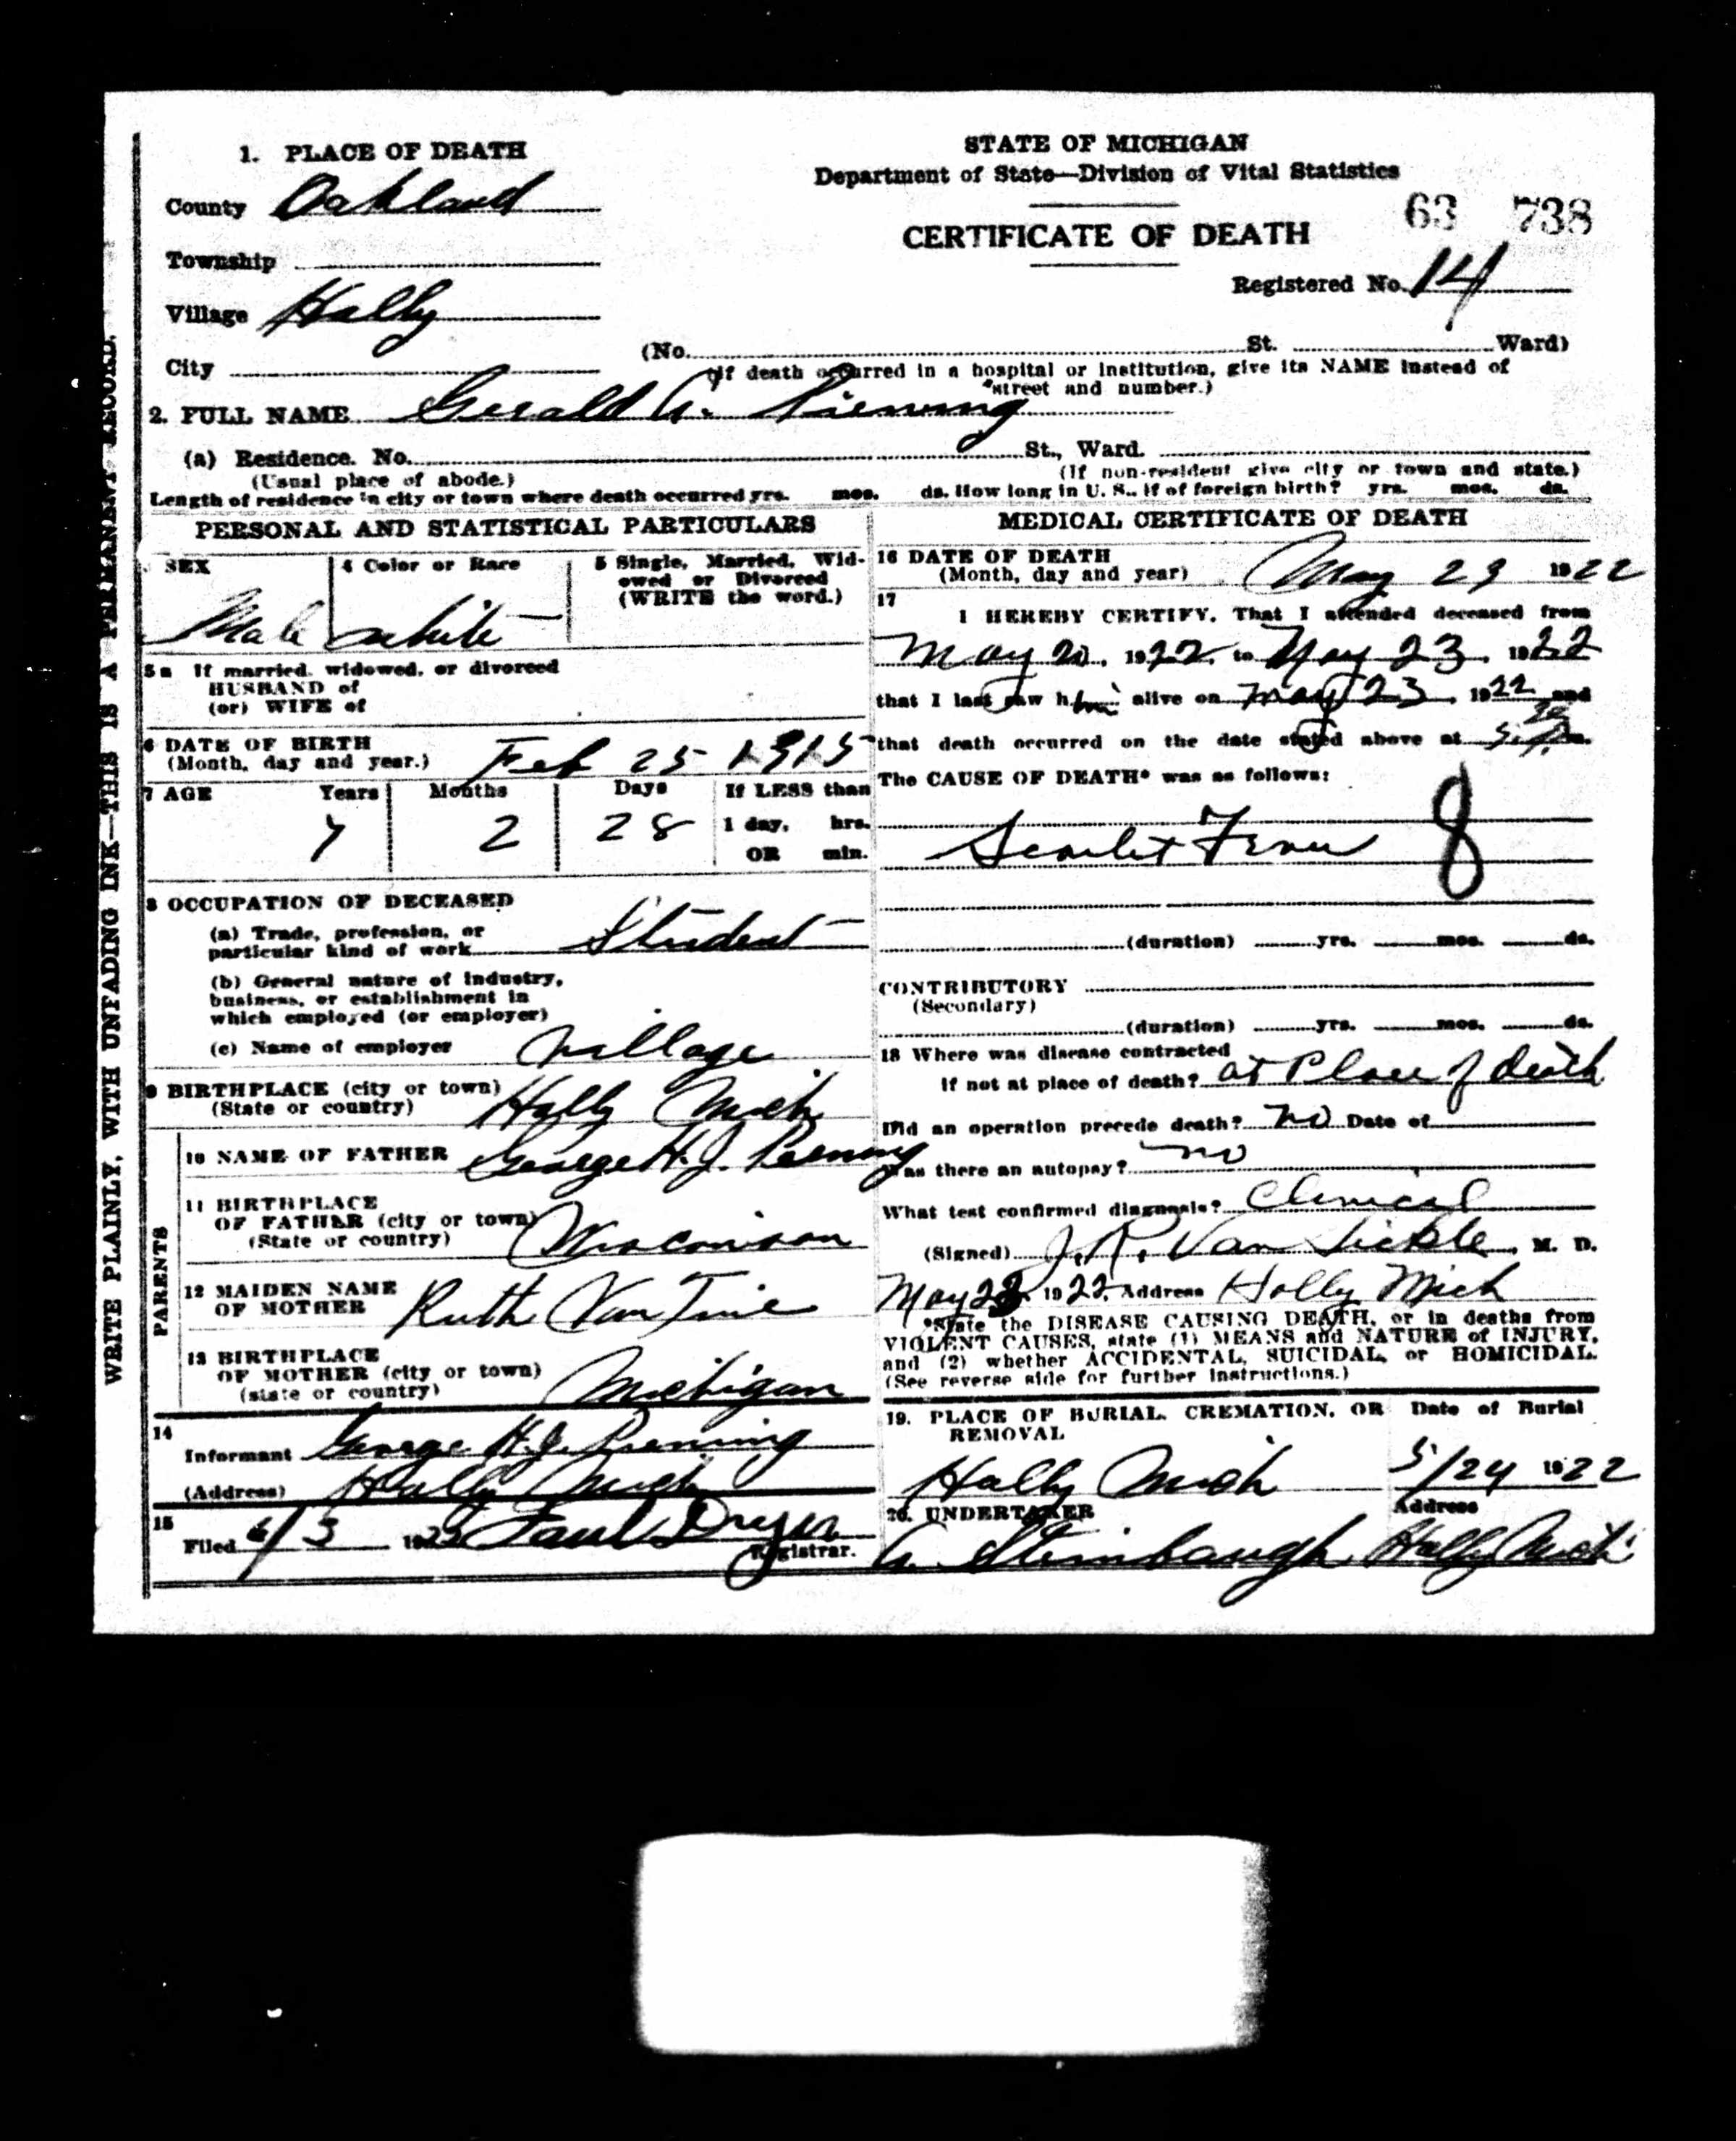 1. PLACE OF DEATH
County Oakland
Township
Village Holly
City
STATE OF MICHIGAN
Department of State—Division of Vital Statistics
63 738
CERTIFICATE OF DEATH
Registered No. 14
(No. St. Ward)
(If death occurred in a hospital or institution, give its NAME instead of
street and number.)
2. FULL NAME Gerald A. Piening
(a) Residence. No. St., Ward.
(Usual place of abode.) (If non-resident give city or town and state.)
Length of residence in city or town where death occurred yrs. mos. ds. How long in U. S., if of foreign birth? yrs. mos. ds.
WRITE PLAINLY, WITH UNFADING INK—THIS IS A PERMANENT RECORD.
PERSONAL AND STATISTICAL PARTICULARS
SEX
Male
4 Color or Race
white
5 Single, Married, Wid-
owed or Divorced
(WRITE the word.)
5a If married, widowed, or divorced
HUSBAND of
(or) WIFE of
6 DATE OF BIRTH
(Month, day and year.) Feb 25 1915
7 AGE Years Months Days If LESS than
7 2 28 1 day, hrs.
OR min.
8 OCCUPATION OF DECEASED
(a) Trade, profession, or
particular kind of work Student
(b) General nature of industry,
business, or establishment in
which employed (or employer)
(c) Name of employer Village
9 BIRTHPLACE (city or town)
(State or country) Holly Mich
PARENTS
10 NAME OF FATHER George H. J. Piening
11 BIRTHPLACE
OF FATHER (city or town)
(State or country) Wisconson
12 MAIDEN NAME
OF MOTHER Ruth Van Tine
13 BIRTHPLACE
OF MOTHER (city or town)
(state or country) Michigan
14
Informant George H. J. Piening
(Address) Holly Mich
15
Filed 6/3 1922 Paul Dryer
Registrar.
MEDICAL CERTIFICATE OF DEATH
16 DATE OF DEATH
(Month, day and year) May 23 1922
17
I HEREBY CERTIFY, That I attended deceased from
May 20, 1922, to May 23, 1922
that I last saw him alive on May 23, 1922 and
that death occurred on the date stated above at
The CAUSE OF DEATH* was as follows:
8
Scarlet Fever
(duration) yrs. mos. ds.
CONTRIBUTORY
(Secondary)
(duration) yrs. mos. ds.
18 Where was disease contracted
if not at place of death? at Place of death
Did an operation precede death? no Date of
Was there an autopsy? no
What test confirmed diagnosis? Clinical
(Signed) J. R. Van Sickle, M. D.
May 23 1922. Address Holly Mich
*State the DISEASE CAUSING DEATH, or in deaths from
VIOLENT CAUSES, state (1) MEANS and NATURE of INJURY,
and (2) whether ACCIDENTAL, SUICIDAL, or HOMICIDAL.
(See reverse side for further instructions.)
19. PLACE OF BURIAL, CREMATION, OR
REMOVAL
Holly Mich
Date of Burial
5/24 1922
20. UNDERTAKER
A. Steinbaugh
Address
Holly Mich